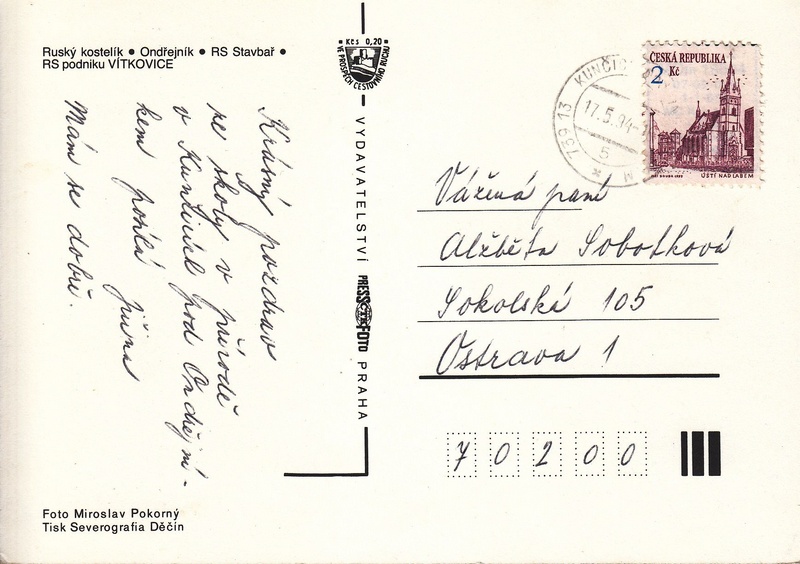 Ruský kostelík ● Ondřejník ● RS Stavbař ●
RS podniku VÍTKOVICE
Krásný pozdrav
ze školy v přírodě
v Kunčicích pod Ondřejní-
kem posílá Jiřina
Mám se dobře.
Foto Miroslav Pokorný
Tisk Severografia Děčín
Kčs 0,20
VE PROSPĚCH CESTOVNÍHO RUCHU
VYDAVATELSTVÍ PRESSFOTO PRAHA
ČTK
739 13 KUNČIC
17.5.94-1
5
M
ČESKÁ REPUBLIKA
2 Kč
ÚSTÍ NAD LABEM
Vážená paní
Alžběta Sobotková
Sokolská 105
Ostrava 1
70200